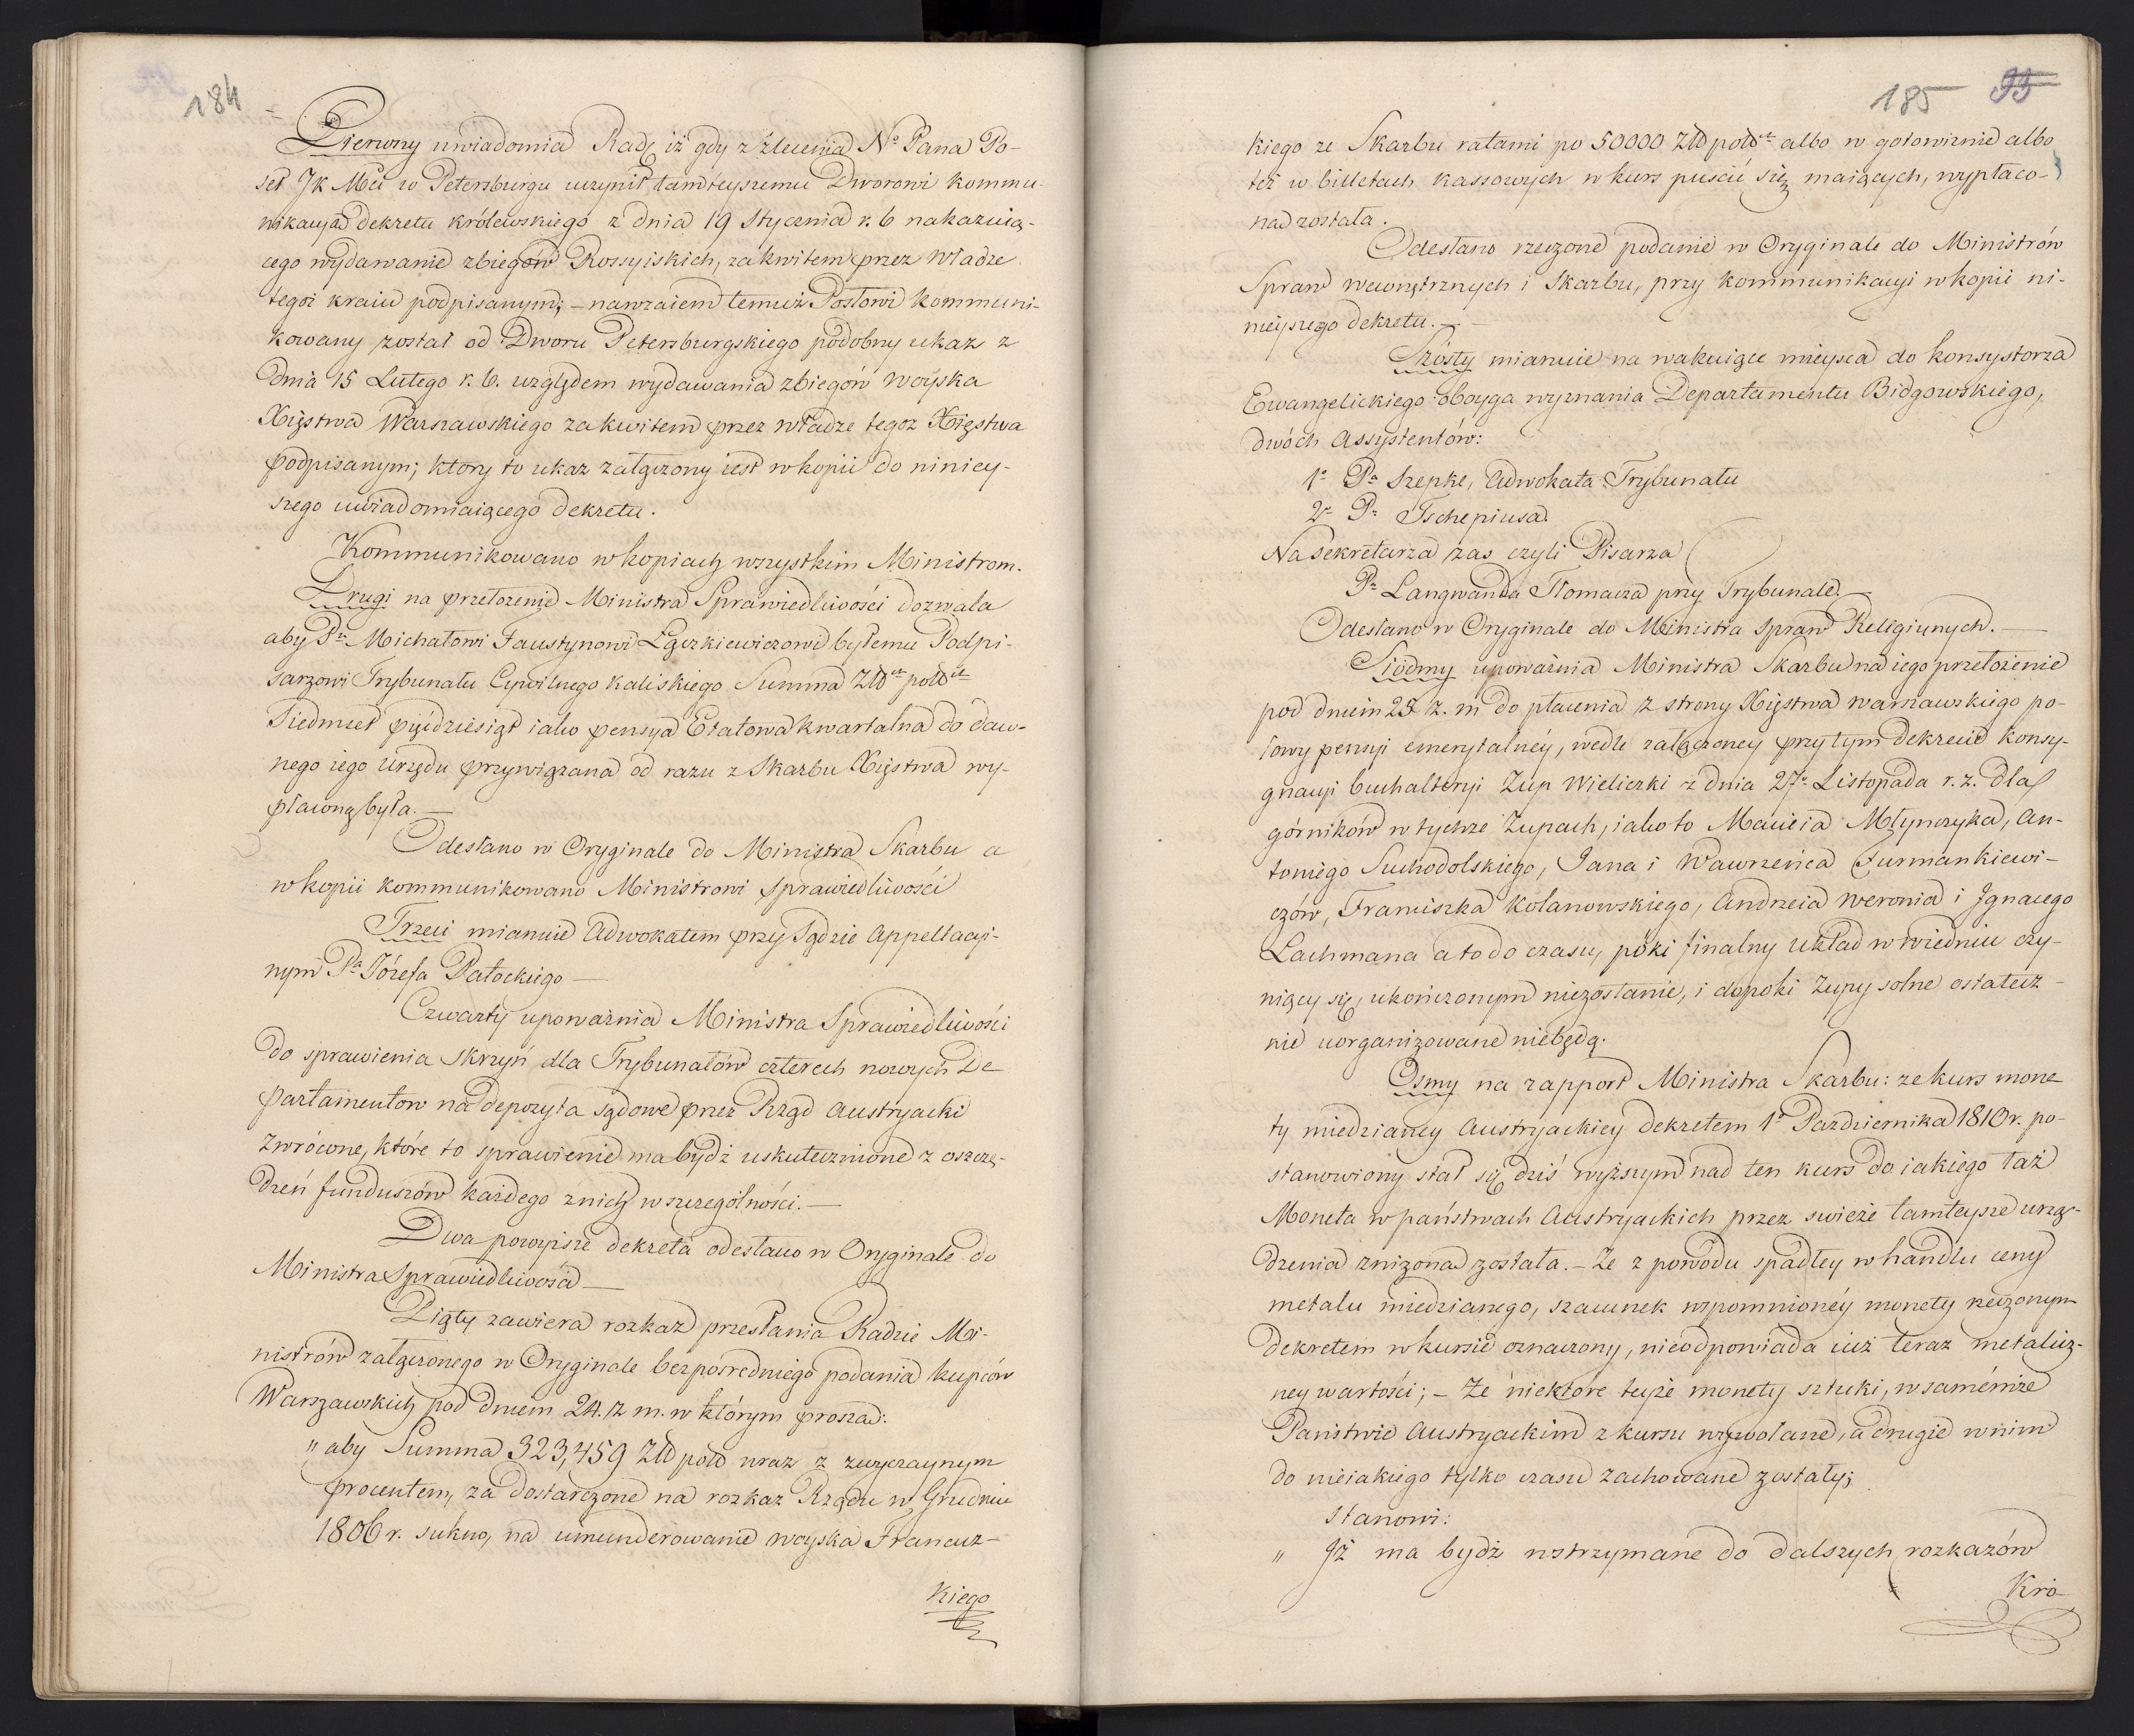 184
Pierwszy uwiadomia Radę iż gdy z Zlecenia No Pana Po-
seł Jk Mci w Petersburgu uczynił tamteyszemu Dworowi kommu-
nikacyą dekretu królewskiego z dnia 19 Stycznia r. b nakazuią-
cego wydawanie zbiegów Rossyiskich, za kwitem przez Władze
tegoż kraiu podpisanym; – nawzaiem temuż Posłowi kommuni-
kowany został od Dworu Petersburgskiego podobny ukaz z
dnia 15 Lutego r. b. względem wydawania zbiegów woyska
Xięstwa Warszawskiego za kwitem przez władze tegoz Xięstwa
podpisanym; który to ukaz załączony iest w kopii do niniey-
szego uwiadomiaiącego dekretu.
Kommunikowano w kopiach wszystkim Ministrom.
Drugi na przełożenie Ministra Sprawiedliwości dozwala
aby Pu Michałowi Faustynowi Łączkiewiczowi byłemu Podpi-
sarzowi Trybunału Cywilnego Kaliskiego Summa Złłch polłch
Siedmset pięćdziesiąt iako pensya Etatowa kwartalna do daw-
nego iego urzędu przywiązana od razu z Skarbu Xięstwa wy-
płaconą była. –
Odesłano w Oryginale do Ministra Skarbu a
w kopii kommunikowano Ministrowi Sprawiedliwości
Trzeci mianuie Adwokatem przy Sądzie Appellacyi-
nym Pa Józefa Pałockiego –
Czwarty upoważnia Ministra Sprawiedliwości
do sprawienia skrzyń dla Trybunałów czterech nowych De-
partamentow na depozyta sądowe przez Rząd Austryacki
zwrócone, które to sprawienie ma bydź uskutecznione z oszczę-
dzeń funduszów każdego z nich w szczególności. –
Dwa powyższe dekreta odesłano w Oryginale do
Ministra Sprawiedliwości –
Piąty zawiera rozkaz przesłania Radzie Mi-
nistrów załączonego w Oryginale bezpośredniego podania kupców
Warszawskich pod dniem 24. z m. w którym proszą:
" aby Summa 323,459 Złł polł wraz z zwyczaynym
procentem, za dostarczone na rozkaz Rządu w Grudniu
1806 r. sukno, na umunderowanie woyska Francuz-
kiego
185 93
kiego ze Skarbu ratami po 50000 Złł połłch albo w gotowiznie albo
też w billetach kassowych w kurs puścić się maiących, wypłaco-
na została.
Odesłano rzeczone podanie w Oryginale do Ministrów
Spraw wewnętrznych i Skarbu, przy kommunikacyi w kopii ni-
nieyszego dekretu. –
Szósty mianuie na wakuiące mieysca do konsystorza
Ewangelickiego oboyga wyznania Departamentu Bidgowskiego,
dwóch Assystentów:
1o Pa Szepke, Adwokata Trybunału
2o Pa Tschepiusa.
Na Sekretarza zas czyli Pisarza
Pa Langwanda Tłomacza przy Trybunale. –
Odesłano w Oryginale do Ministra Spraw Religiynych. –
Siódmy upoważnia Ministra Skarbu na iego przełożenie
pod dniem 25 z. m do płacenia z strony Xięstwa warszawskiego po-
łowy pensyi emerytalnéy, wedle załączoney przy tym dekrecie konsy-
gnacyi buchalteryi Żup Wieliczki z dnia 27o Listopada r. z. dla
górników w tychże Żupach, iako to Macieia Młynczyka, An-
toniego Suchodolskiego, Jana i Wawrzeńca Furmankiewi-
czów, Franciszka Kolanowskiego, Andrzeia Weronia i Jgnacego
Lachmana a to do czasu, póki finalny układ w Wiedniu czy-
niący się, ukończonym niezostanie, i dopoki Żupy solne ostatecz-
nie uorganizowane niebędą.
Osmy na rapport Ministra Skarbu: ze kurs mone-
ty miedzianey Austryackiey dekretem 1o Pazdziernika 1810 r. po-
stanowiony stał się dziś wyższym nad ten kurs do iakiego taż
Moneta w państwach Austryackich przez swieże tamteysze urzą-
dzenia znizona została. – Ze z powodu spadłey w handlu ceny
metalu miedzianego, szacunek wspomnionéy monety rzeczonym
dekretem w kursie oznaczony, nieodpowiada iuż teraz metalicz-
ney wartości; – Ze niektóre teyże monety sztuki, w saméinże
Państwie Austryackim z kursu wywołane, a drugie w nim
do nieiakiego tylko czasu zachowane zostały;
Stanowi:
" Jż ma bydż wstrzymane do dalszych rozkazów
Kró-